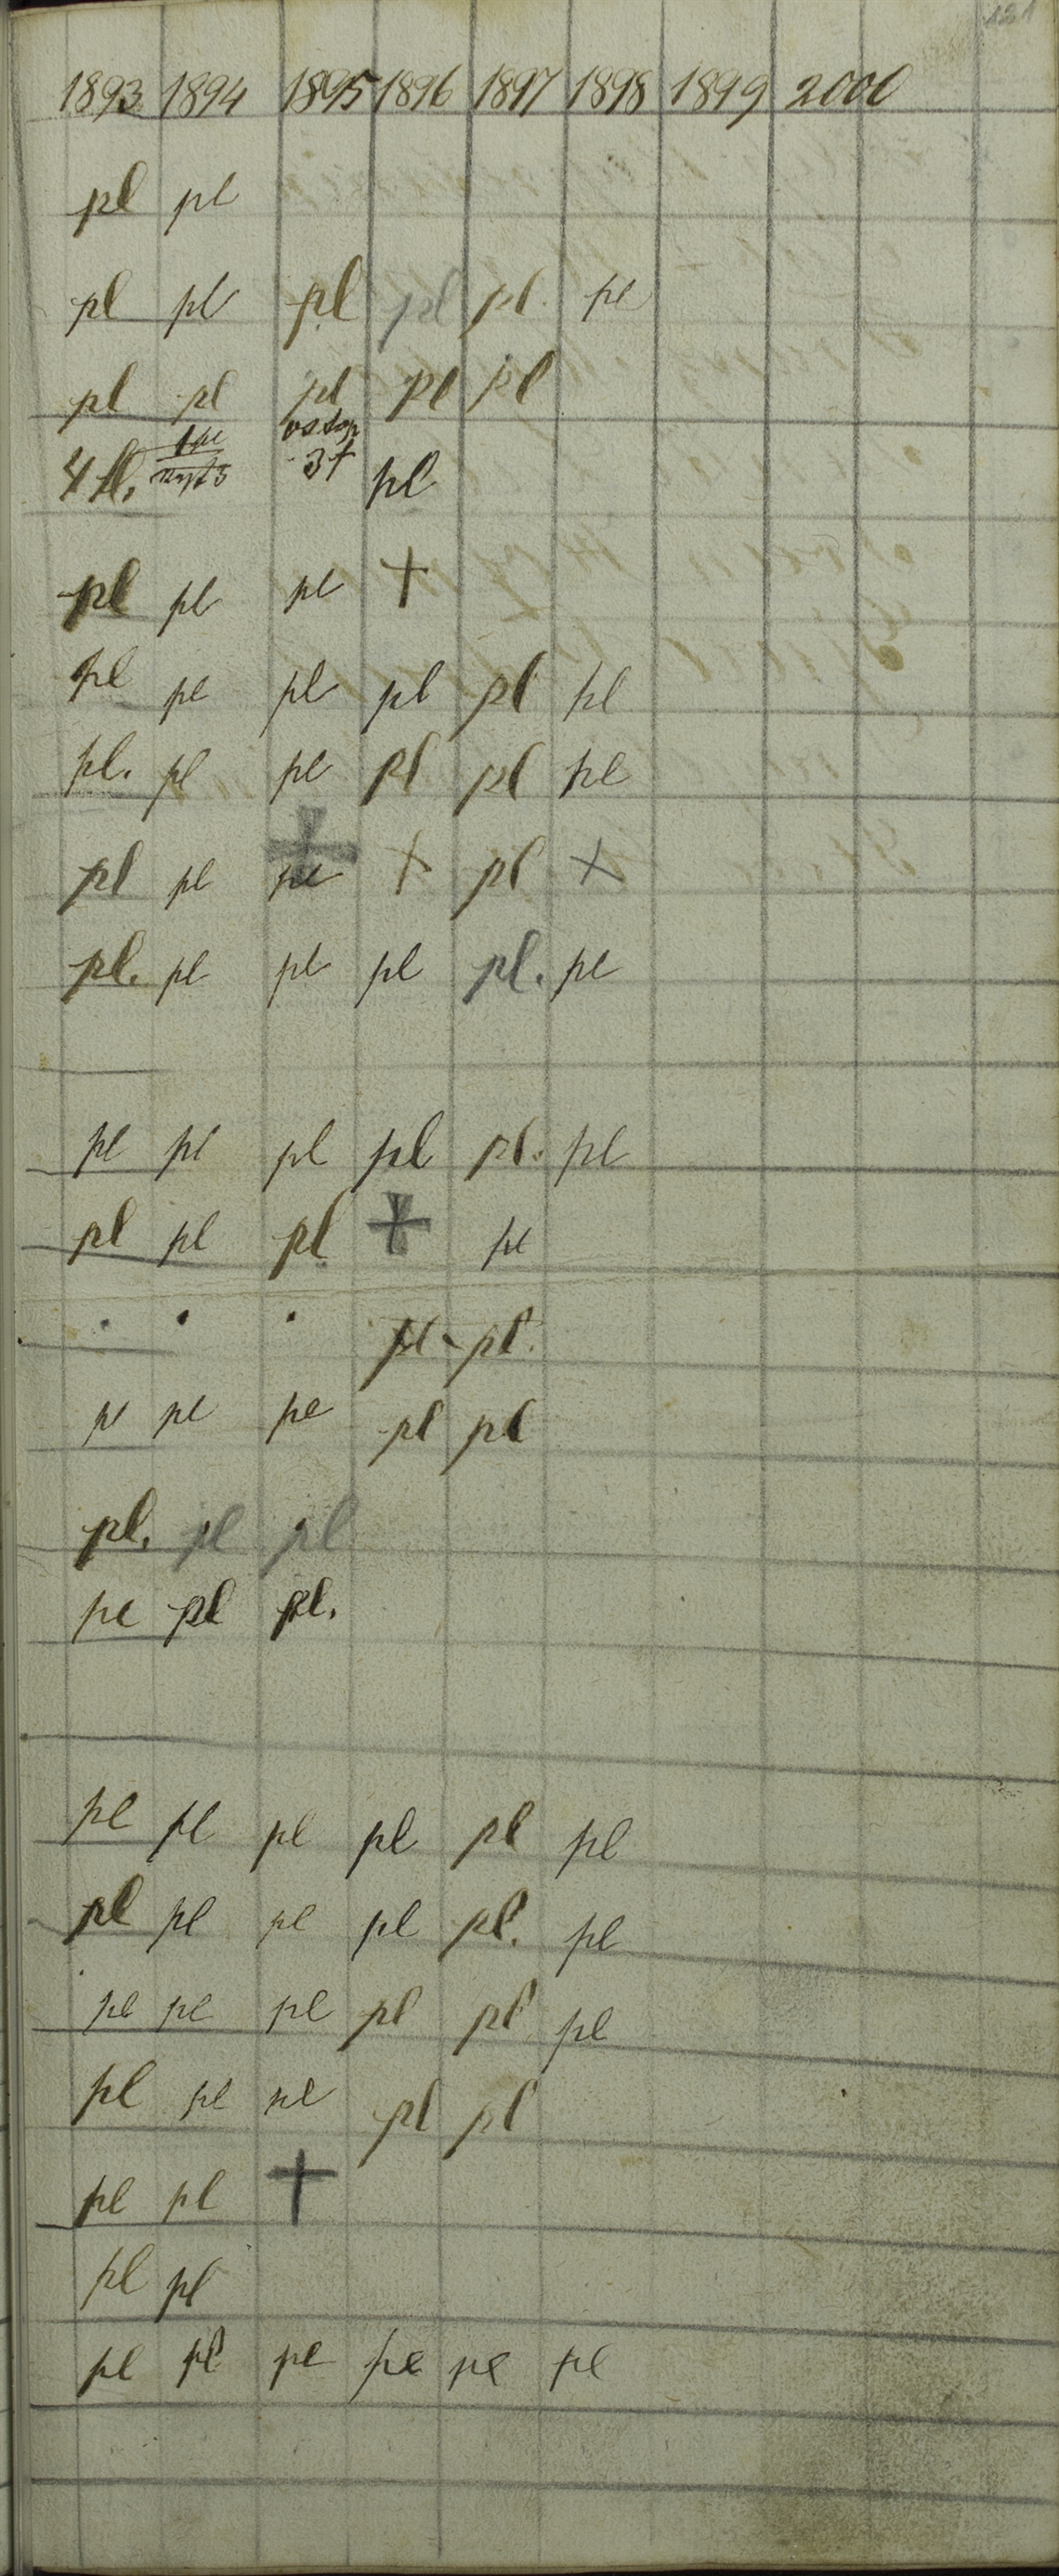 121
1893 1894 1895 1896 1897 1898 1899 2000
pl pl
pl pl pl pl pl. pl
pl pl pl pl pl
4 fl. 3 + pl
pl pl pl +
pl pl pl pl pl pl
pl. pl pl pl pl pl
pl pl pl + + pl +
pl. pl pl pl pl. pl
pl pl pl pl pl. pl
pl pl pl + pl
. . . pl - pl.
pl pl pl pl pl
pl. pl pl
pl pl pl.
pl pl pl pl pl pl
pl pl pl pl pl. pl
pl pl pl pl pl pl
pl pl pl pl pl
pl pl +
pl pl
pl pl pl pl pl pl